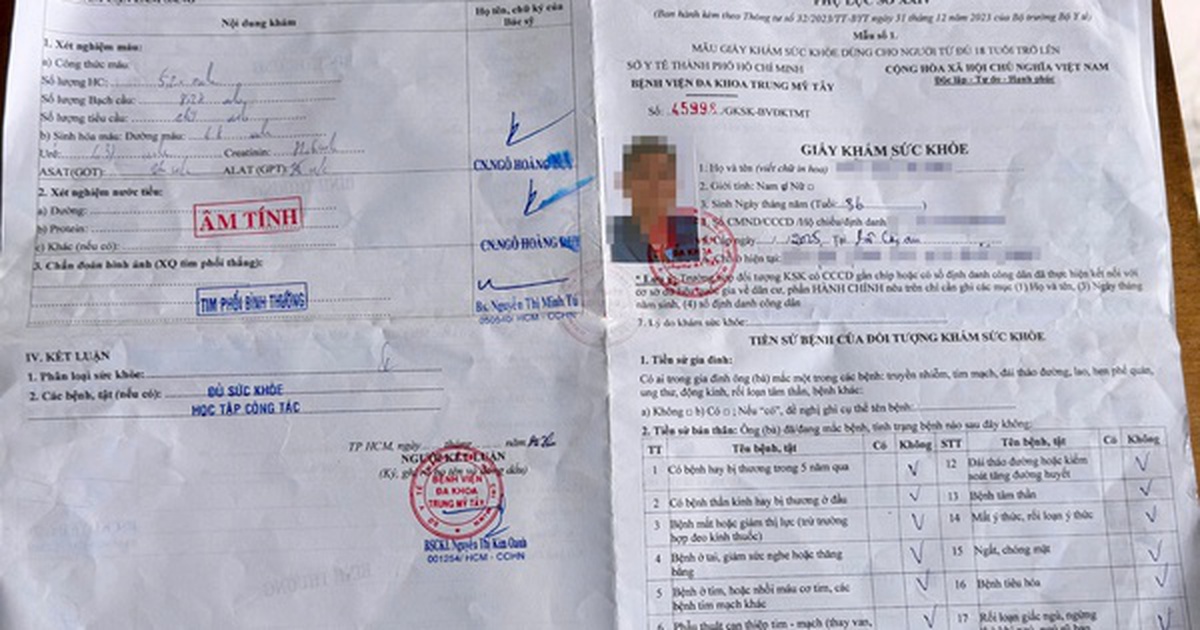 Nội dung khám
Họ tên, chữ ký của
Bác sỹ
1. Xét nghiệm máu:
a) Công thức máu:
Số lượng HC:
Số lượng Bạch cầu:
Số lượng tiểu cầu:
b) Sinh hóa máu: Đường máu:
Urê: Creatinin:
ASAT(GOT): ALAT (GPT):
CN.NGÔ HOÀNG
2. Xét nghiệm nước tiểu:
a) Đường:
b) Protein:
ÂM TÍNH
c) Khác (nếu có):
CN.NGÔ HOÀNG
3. Chẩn đoán hình ảnh (XQ tim phổi thẳng):
TIM PHỔI BÌNH THƯỜNG
Bs. Nguyễn Thị Minh Tú
050540/ HCM - CCHN
IV. KẾT LUẬN
1. Phân loại sức khỏe:
2. Các bệnh, tật (nếu có): ĐỦ SỨC KHỎE
HỌC TẬP CÔNG TÁC
TP HCM, ngày tháng năm
NGƯỜI KẾT LUẬN
BỆNH VIỆN
ĐA KHOA
TRUNG MỸ TÂY
BSCKI. Nguyễn Thị Kim Oanh
001254/ HCM - CCHN
PHỤ LỤC SỐ XXIV
(Ban hành kèm theo Thông tư số 32/2023/TT-BYT ngày 31 tháng 12 năm 2023 của Bộ trưởng Bộ Y tế)
Mẫu số 1.
MẪU GIẤY KHÁM SỨC KHỎE DÙNG CHO NGƯỜI TỪ ĐỦ 18 TUỔI TRỞ LÊN
SỞ Y TẾ THÀNH PHỐ HỒ CHÍ MINH
CỘNG HÒA XÃ HỘI CHỦ NGHĨA VIỆT NAM
BỆNH VIỆN ĐA KHOA TRUNG MỸ TÂY
Độc lập - Tự do - Hạnh phúc
Số: 45998 /GKSK-BVĐKTMT
GIẤY KHÁM SỨC KHỎE
1. Họ và tên (viết chữ in hoa)
2. Giới tính: Nam Nữ □
3. Sinh Ngày tháng năm (Tuổi: 36 )
4. Số CMND/CCCD /Hộ chiếu/định danh
5. Cấp ngày / /2025 Tại
ĐA KHOA
ở hiện tại:
đối tượng KSK có CCCD gắn chip hoặc có số định danh công dân đã thực hiện kết nối với
cơ sở dữ liệu quốc gia về dân cư, phần HÀNH CHÍNH nêu trên chỉ cần ghi các mục (1) Họ và tên, (3) Ngày tháng
năm sinh, (4) số định danh công dân
7. Lý do khám sức khỏe:
TIỀN SỬ BỆNH CỦA ĐỐI TƯỢNG KHÁM SỨC KHỎE
1. Tiền sử gia đình:
Có ai trong gia đình ông (bà) mắc một trong các bệnh: truyền nhiễm, tim mạch, đái tháo đường, lao, hen phế quản,
ung thư, động kinh, rối loạn tâm thần, bệnh khác:
a) Không □ b) Có □ ; Nếu "có", đề nghị ghi cụ thể tên bệnh:
2. Tiền sử bản thân: Ông (bà) đã/đang mắc bệnh, tình trạng bệnh nào sau đây không:
TT Tên bệnh, tật Có Không STT Tên bệnh, tật Có Không
1 Có bệnh hay bị thương trong 5 năm qua ✓ 12 Đái tháo đường hoặc kiểm
soát tăng đường huyết ✓
2 Có bệnh thần kinh hay bị thương ở đầu ✓ 13 Bệnh tâm thần ✓
3 Bệnh mắt hoặc giảm thị lực (trừ trường
hợp đeo kính thuốc) ✓ 14 Mất ý thức, rối loạn ý thức ✓
4 Bệnh ở tai, giảm sức nghe hoặc thăng
bằng ✓ 15 Ngất, chóng mặt ✓
5 Bệnh ở tim, hoặc nhồi máu cơ tim, các
bệnh tim mạch khác ✓ 16 Bệnh tiêu hóa ✓
6 Phẫu thuật can thiệp tim - mạch (thay van, ✓ 17 Rối loạn giấc ngủ, ngừng ✓